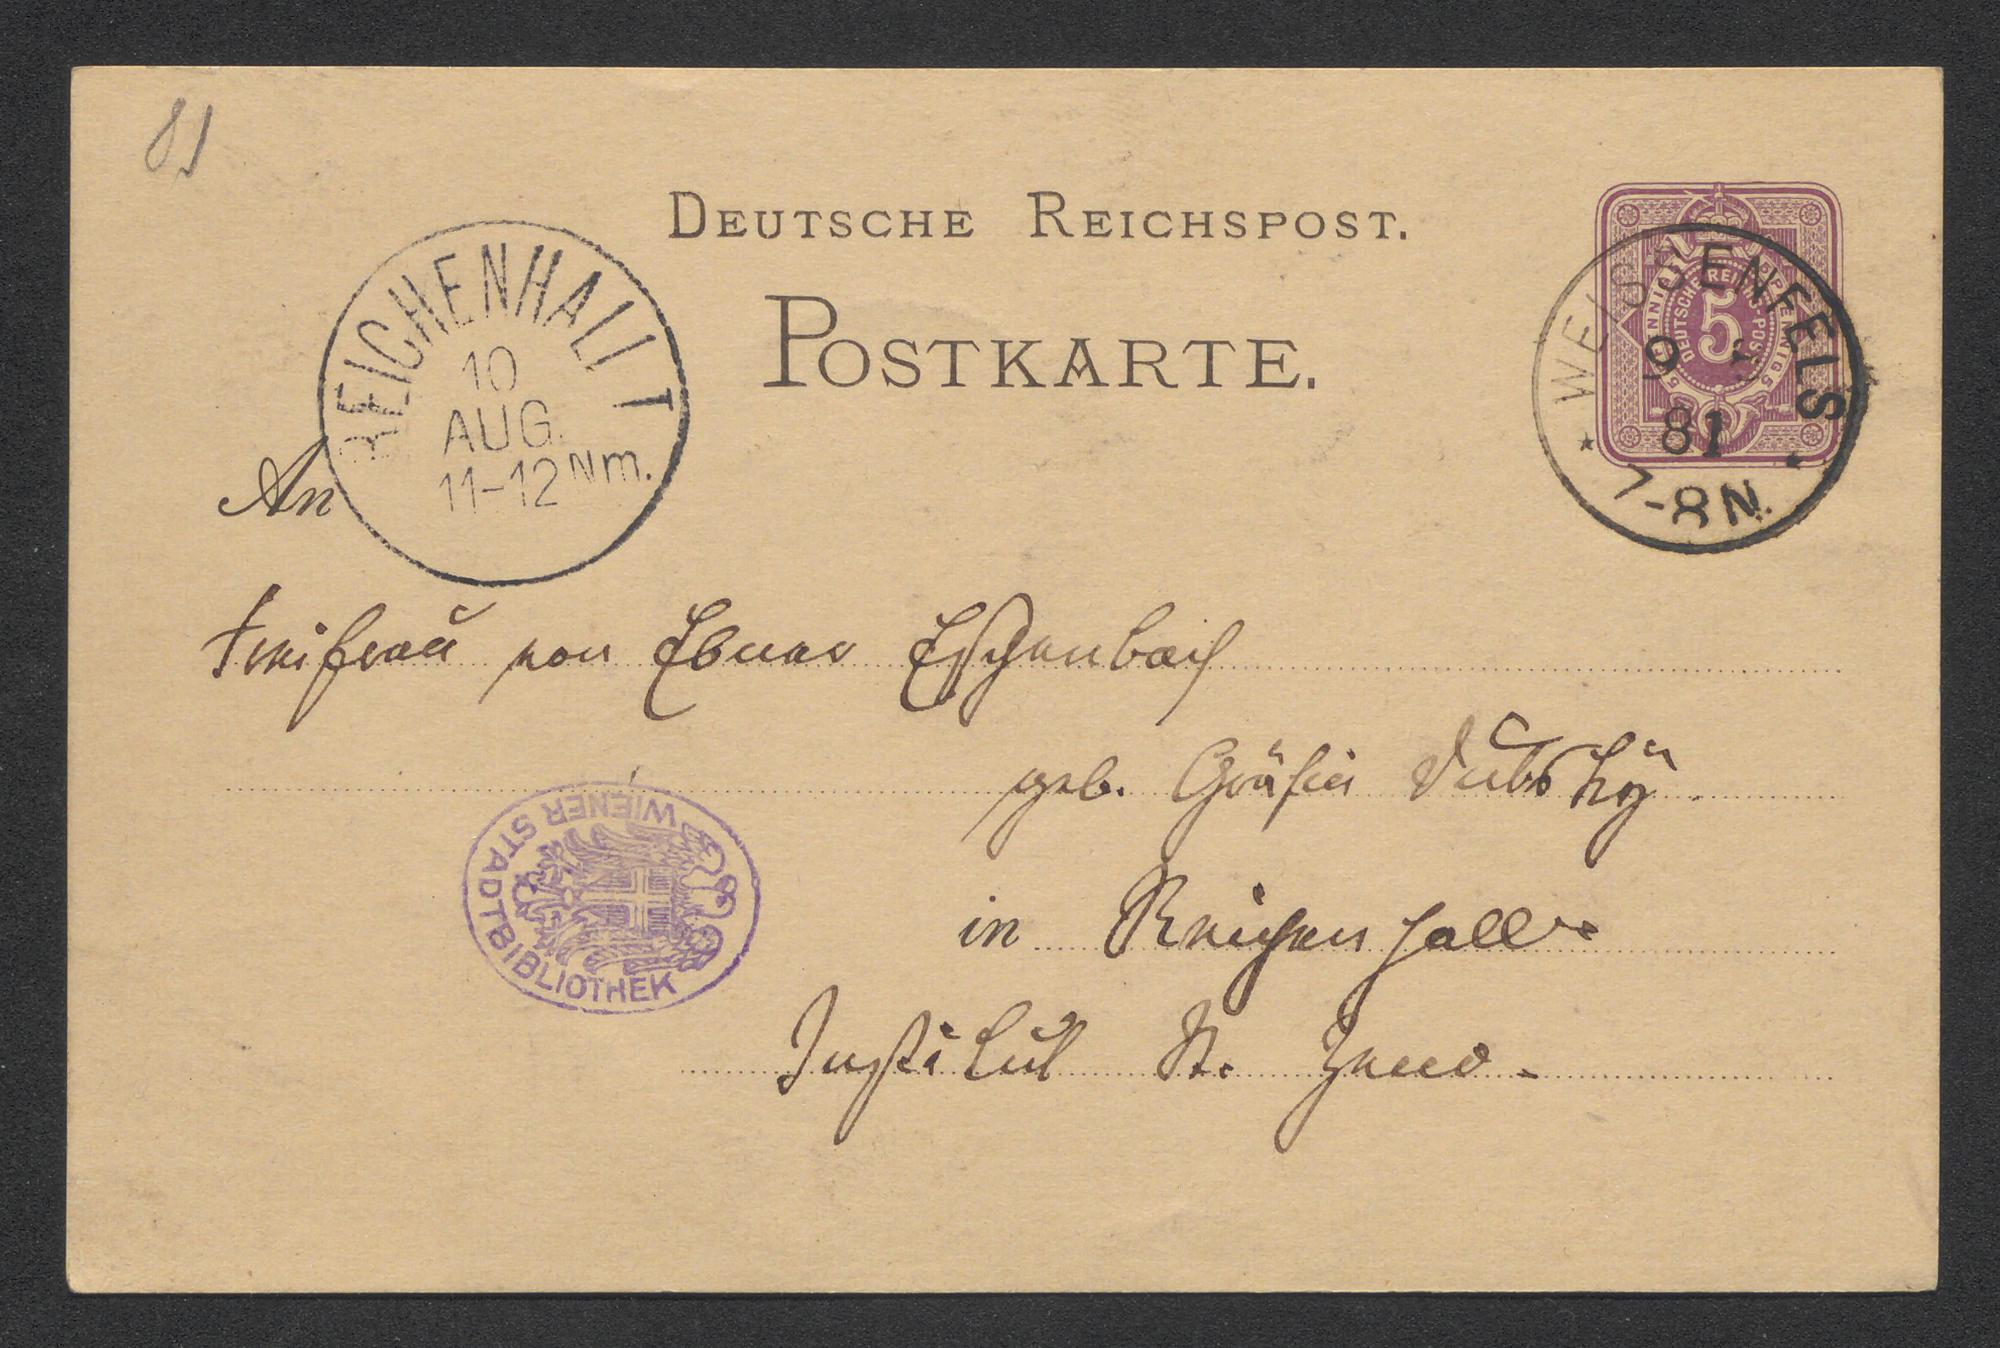 81
DEUTSCHE REICHSPOST.
POSTKARTE.
REICHENHALL I
10
AUG.
11-12 Nm.
5 PFENNIG 5 PFENNIG
DEUTSCHE REICHS-POST
5
WEISSENFELS
9 8
81
7-8N.
An
Freifrau von Ebner Eschenbach
geb. Gräfin Dubsky.
in Reichenhall
Institut St. Zeno.
WIENER STADTBIBLIOTHEK